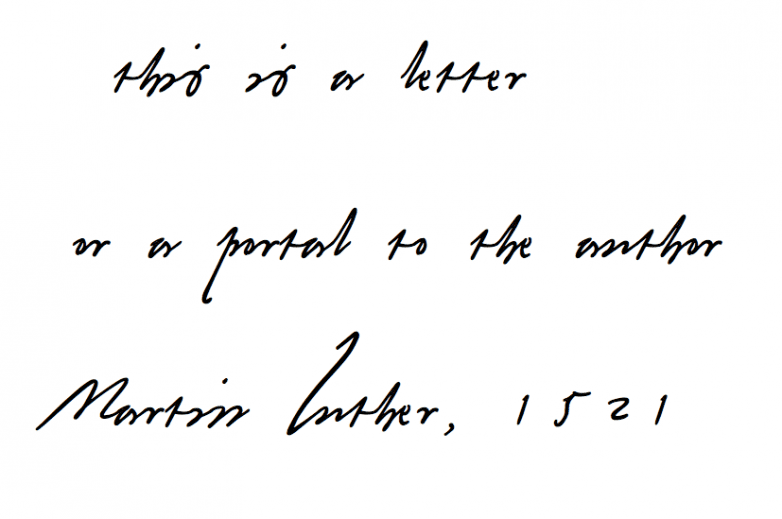 this is a letter
or a portal to the author
Martin Luther, 1521